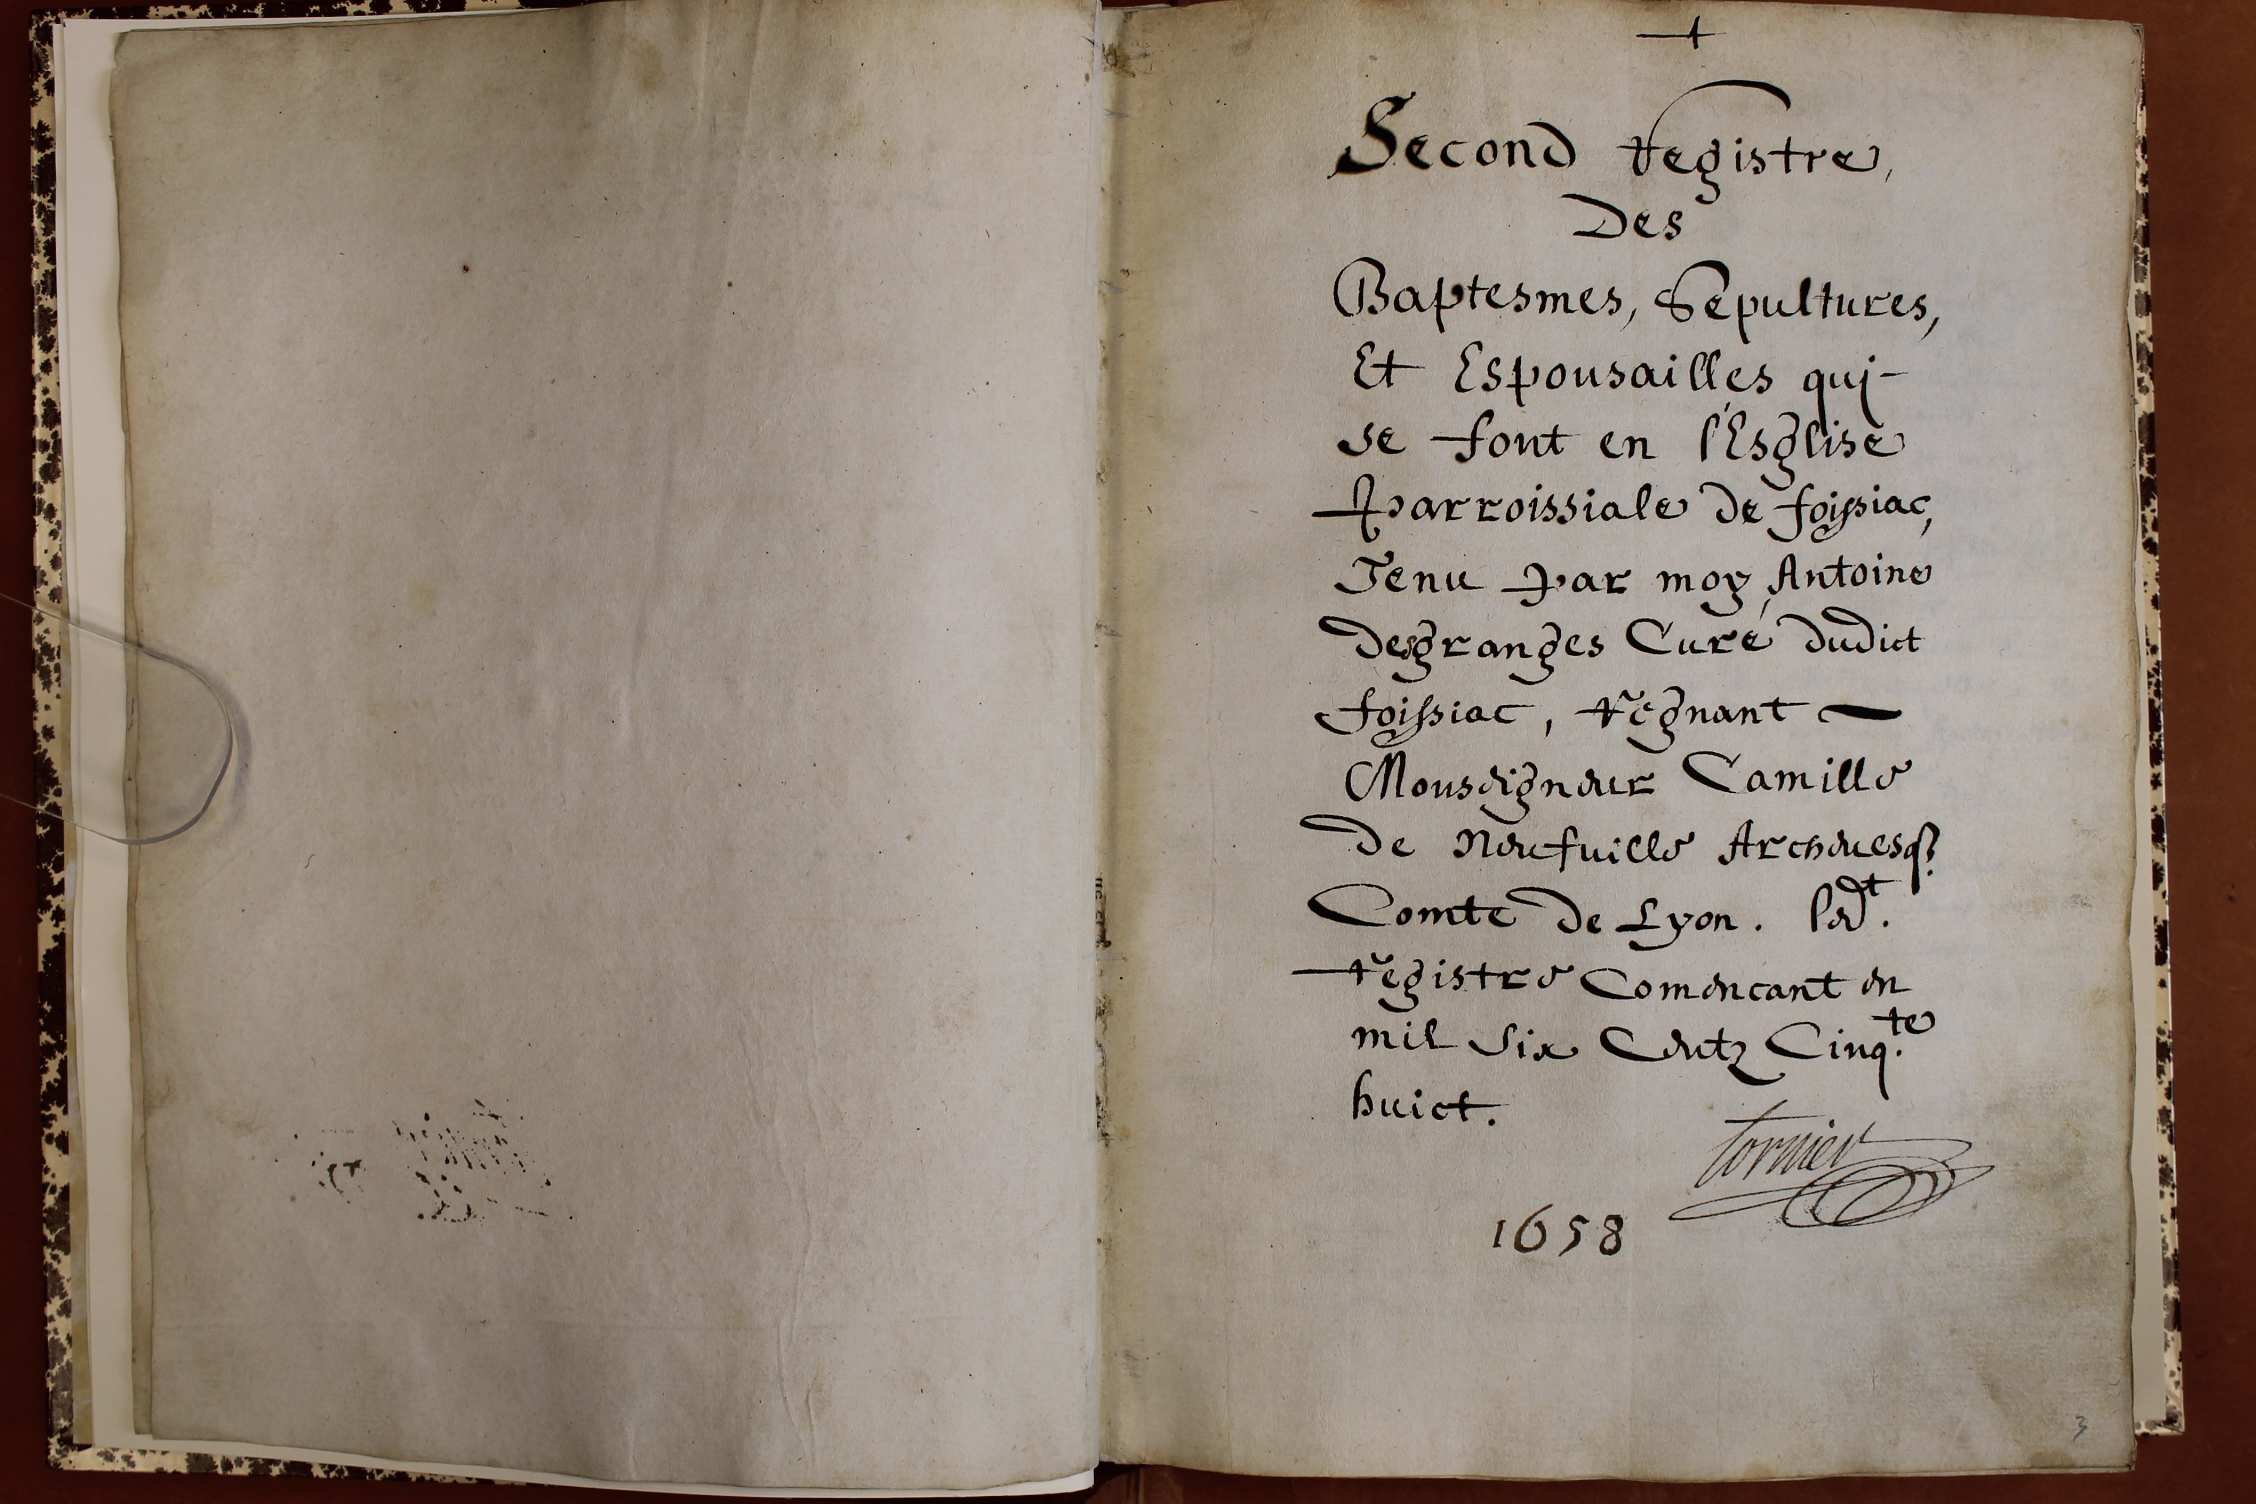 Second registre,
Des
Baptesmes, Sepultures,
Et Espousailles qui-
se font en l'Esglise
Parroissiale de foissiac,
Tenu par moy, Antoine
Desgranges Curé dudict
foissiac, regnant
Monseigneur Camille
de Neufuille Archeuesq.
Comte de Lyon. led.t
registre Comencant en
mil six Centz Cinq.te
huict.
1658
3